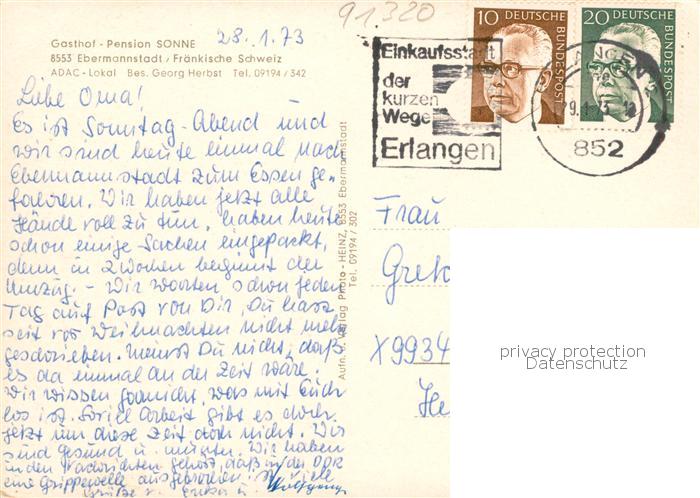 28.1.73
91.320
Gasthof - Pension SONNE
8553 Ebermannstadt / Fränkische Schweiz
ADAC - Lokal Bes. Georg Herbst Tel. 09194 / 342
Liebe Oma!
Es ist Sonntag-Abend und
wir sind heute einmal nach
Ebermannstadt zum Essen ge-
fahren. Wir haben jetzt alle
Hände voll zu tun, haben heute
schon einige Sachen eingepackt,
denn in 2 Wochen beginnt der
Umzug. - Wir warten schon jeden
Tag auf Post von Dir, Du hast
seit vor Weihnachten nicht mehr
geschrieben. Meinst Du nicht, daß
es da einmal an der Zeit wäre.
Wir wissen garnicht, was mit Euch
los ist. Soviel Arbeit gibt es doch
jetzt um diese Zeit doch nicht. Wir
sind gesund u. munter. Wir haben
in den Nachrichten gehört, daß in der DDR
eine Grippewelle ausgebrochen ist. Viele
Grüße v. Erika u. Wolfgang
Aufn. u. Verlag Photo - HEINZ, 8553 Ebermannstadt
Tel. 09194 / 302
10 DEUTSCHE
BUNDESPOST
20 DEUTSCHE
BUNDESPOST
Einkaufsstadt
der
kurzen
Wege
Erlangen
852
Frau
Greta
X9934
privacy protection
Datenschutz